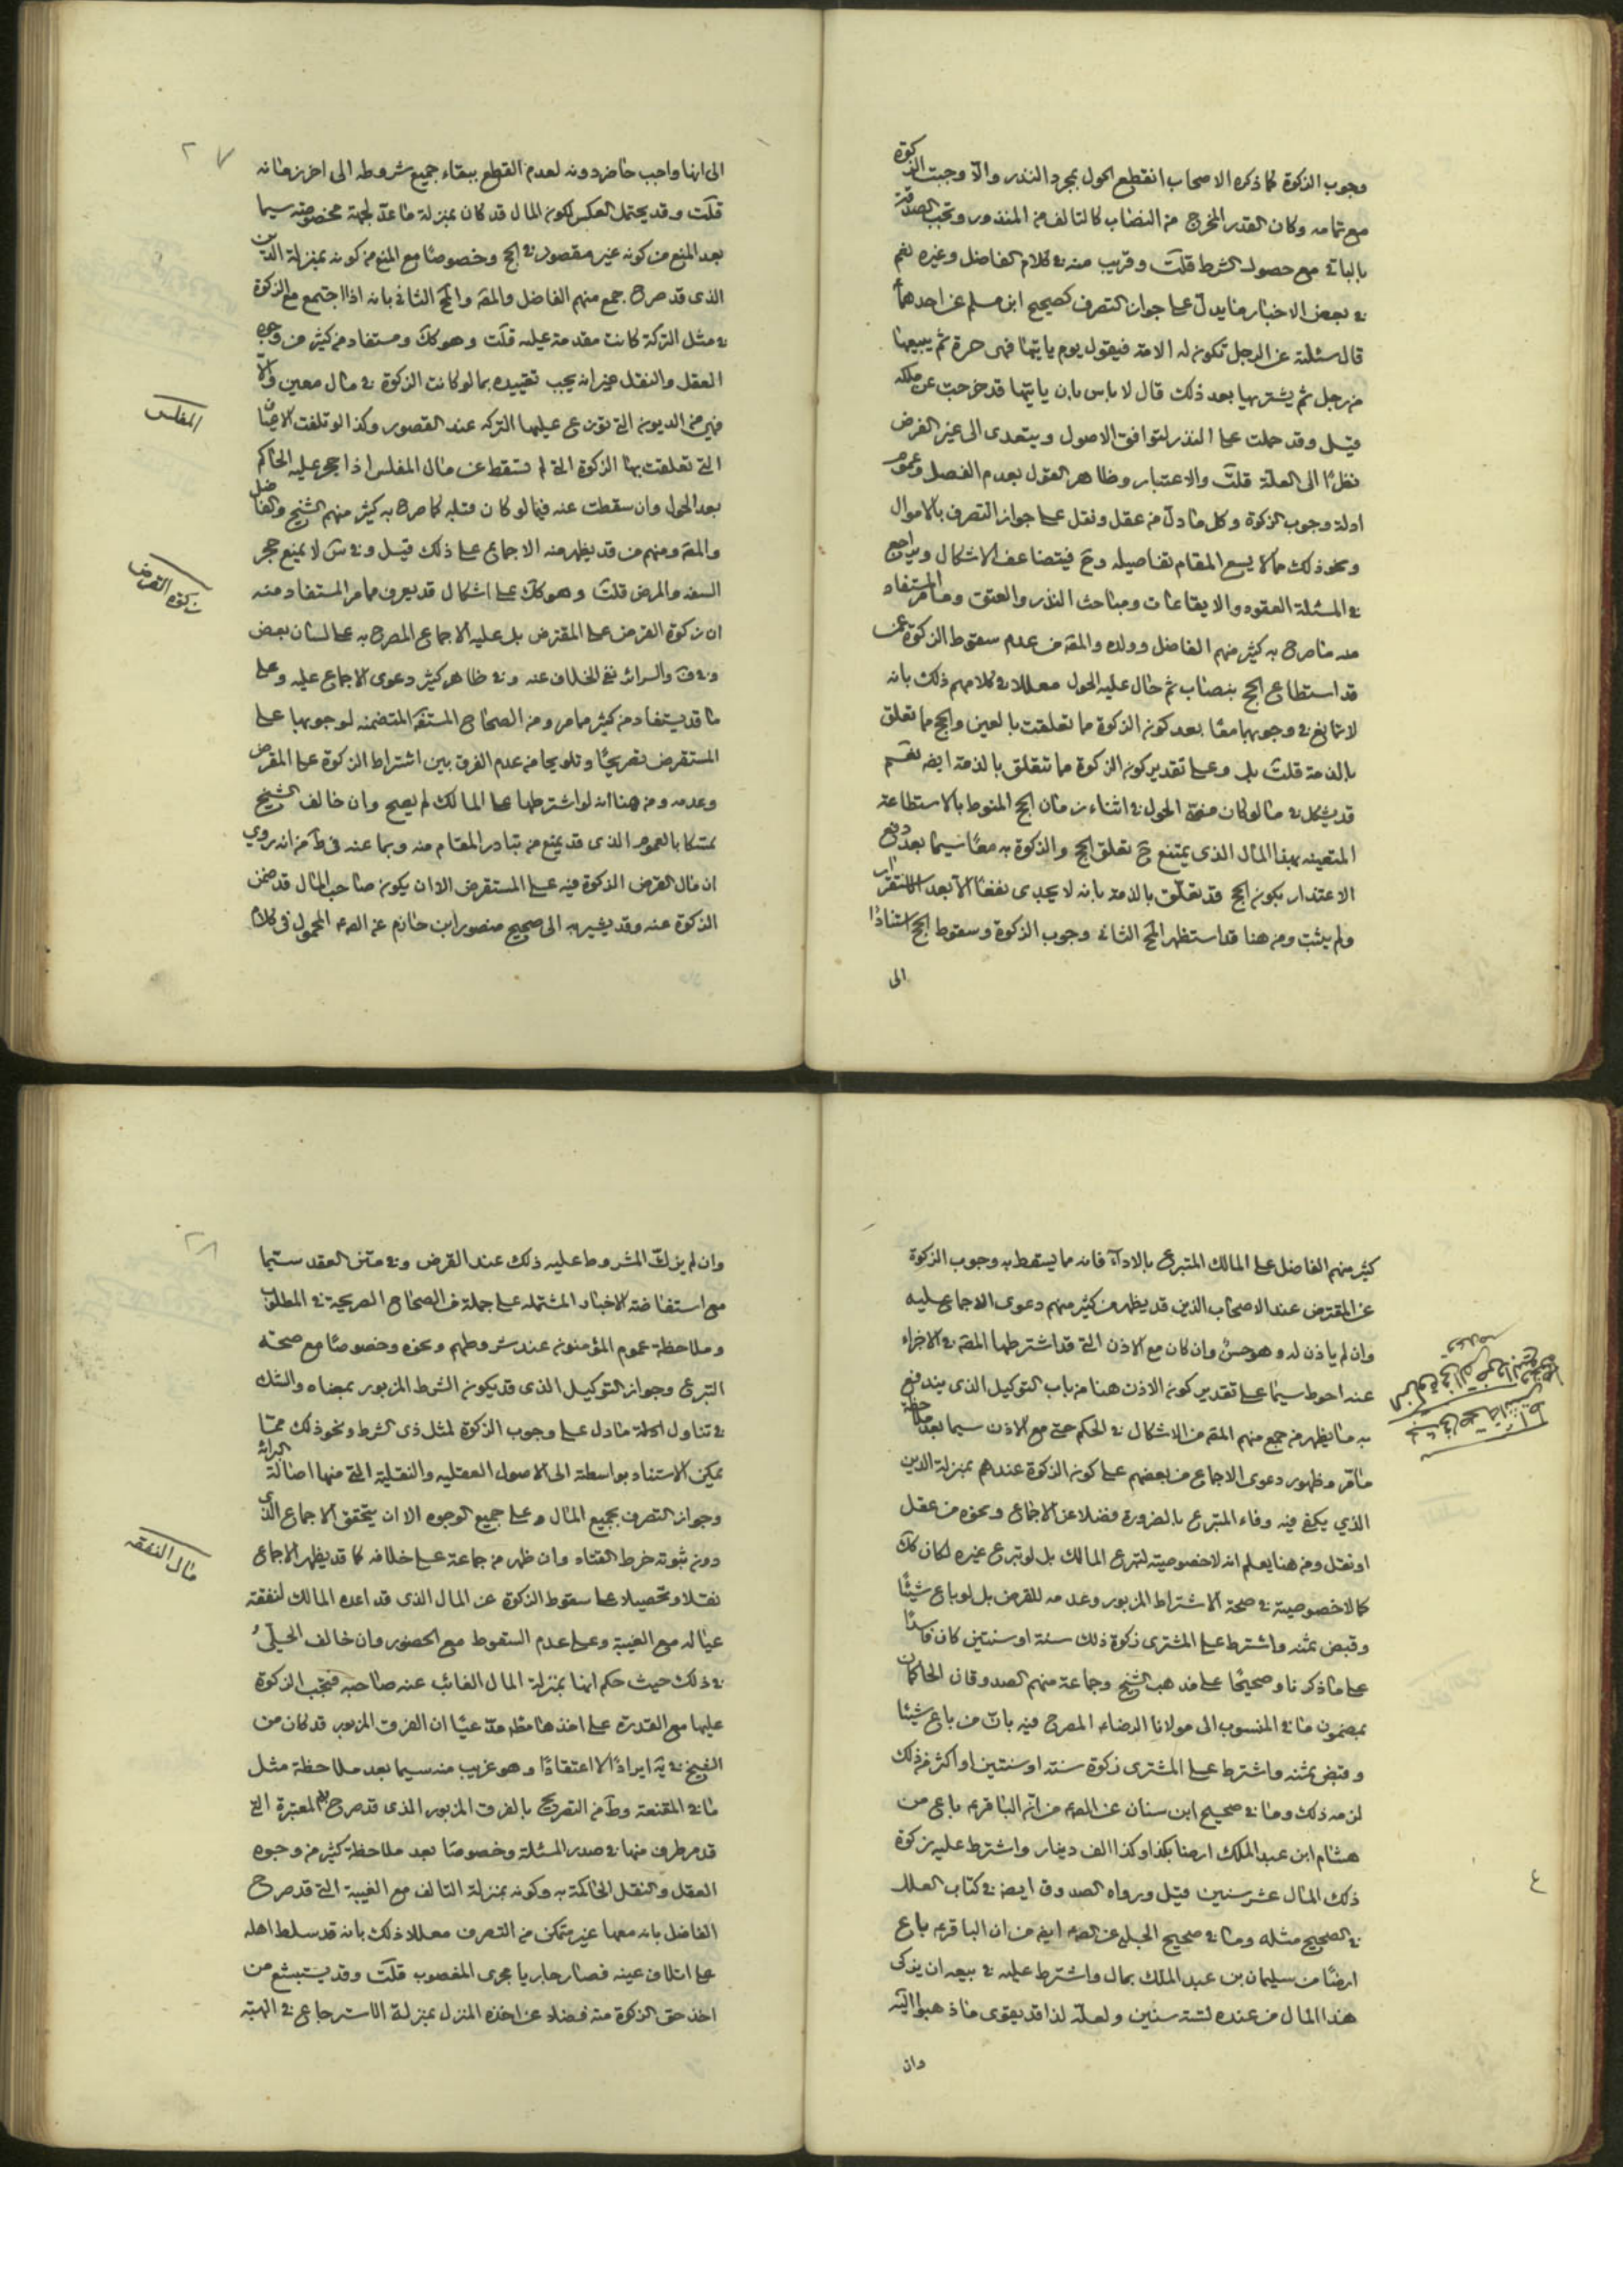 وجوب الزكوة كما ذكره الاصحاب انقطع الحول بمجرد النذر والا وجبت الزكوة
مع تمامه وكان القدر المخرج من النصاب كالتالف من المنذور وتجب الصدقة
بالباقي مع حصول الشرط قلت وقريب منه في كلام الفاضل وغيره نعم
في بعض الاخبار ما يدل على جواز التصرف كصحيح ابن مسلم عن احدهما
قال سئلته عن الرجل تكون له الامة فيقول يوم ياتيها فهي حرة ثم يبيعها
من رجل ثم يشتريها بعد ذلك قال لا باس بان ياتيها قد خرجت عن ملكه
قيل وقد حملت على النذر لتوافق الاصول ويتعدى الى غير الفرض
نظرا الى العلة قلت والاعتبار وظاهر القول بعدم الفصل وعموم
ادلة وجوب الزكوة وكل ما دل من عقل ونقل على جواز التصرف بالاموال
ونحو ذلك مما لا يسع المقام تفاصيله وح فيتضاعف الاشكال ويراجع
في المسئلة العقود والايقاعات ومباحث النذر والعتق ومما مر المستفاد
منه ما صرح به كثير منهم الفاضل وولده والمقه من عدم سقوط الزكوة عمن
قد استطاع الحج بنصاب ثم حال عليه الحول معللا في كلامهم ذلك بانه
لا تمانع في وجوبهما معا بعد كون الزكوة مما تعلقت بالعين والحج مما تعلق
بالذمة قلت بلى وعلى تقدير كون الزكوة مما تتعلق بالذمة ايضه نعم
قد يشكل في ما لو كان الحول في اثناء زمان الحج المنوط بالاستطاعة
المتعينه بهذا المال الذي يمتنع ح تعلق الحج والزكوة به معا سيما بعد دفع
الاعتذار بكون الحج قد تعلق بالذمة بانه لا يجدى نفعا الا بعد الاستقرار
ولم يثبت ومن هنا قد استظهر المح الثاني وجوب الزكوة وسقوط الحج استنادا
الى
٢٧
الى انها واجب حاضر دونه لعدم القطع ببقاء جميع شروطه الى اخر زمانه
قلت وقد يحتمل العكس لكون المال قد كان بمنزلة ما عد لجهة مخصوصه سيما
بعد المنع من كونه غير مقصور في الحج وخصوصا مع المنع من كونه بمنزلة الدين
الذي قد صرح جمع منهم الفاضل والمقه والمح الثاني بانه اذا اجتمع مع الزكوة
في مثل التركة كانت مقدمة عليه قلت وهو كك ومستفاد من كثير من وجوه
العقل والنقل غير انه يجب تقييده بما لو كانت الزكوة في مال معين والا
فهي من الديون التي توزع عليها التركه عند القصور وكذا لو تلفت الاعيان
التي تعلقت بها الزكوة التي لم تسقط عن مال المفلس اذا حجر عليه الحاكم
بعد الحول وان سقطت عنه فيما لو كان قبله كما صرح به كثير منهم الشيخ والفاضل
والمقه ومنهم من قد يظهر منه الاجماع على ذلك قيل وفي س لا يمنع حجر
السفه والمرض قلت وهو كك على اشكال قد يعرف مما مر المستفاد منه
ان زكوة القرض على المقترض بل عليه الاجماع المصرح به على لسان بعض
وفي ف والسرائر نفى الخلاف عنه وفي ظاهر كثير دعوى الاجماع عليه وعلى
ما قد يستفاد من كثير مما مر ومن الصحاح المستفه المتضمنه لوجوبها على
المستقرض تصريحا وتلويحا من عدم الفرق بين اشتراط الزكوة على المقرض
وعدمه ومن هنا انه لو اشترطها على المالك لم يصح وان خالف الشيخ
تمسكا بالعموم الذي قد يمنع من تبادر المقام منه وبما عنه في ط من انه روي
ان مال القرض الزكوة فيه على المستقرض الا ان يكون صاحب المال قد ضمن
الزكوة عنه وقد يشير به الى صحيح منصور ابن حازم عن الصه المحمول في كلام
المفلس
زكوة القرض
كثير منهم الفاضل على المالك المتبرع بالاداء فانه مما يسقط به وجوب الزكوة
عن المقترض عند الاصحاب الذين قد يظهر من كثير منهم دعوى الاجماع عليه
وان لم ياذن له وهو حسن وان كان مع الاذن التي قد اشترطها المقه في الاجزاء
عنه احوط سيما على تقدير كون الاذن هنا من باب التوكيل الذي يندفع
به ما يظهر من جمع منهم المقه من الاشكال في الحكم حتى مع الاذن سيما بعد ملاحظة
ما مر وظهور دعوى الاجماع من بعضهم على كون الزكوة عندهم بمنزلة الدين
الذي يكفي فيه وفاء المتبرع بالضرورة فضلا عن الاجماع ونحوه من عقل
او نقل ومن هنا يعلم انه لا خصوصية لتبرع المالك بل لو تبرع غيره لكان كك
كما لا خصوصية في صحة الاشتراط المزبور وعدمه للقرض بل لو باع شيئا
وقبض ثمنه واشترط على المشترى زكوة ذلك سنة او سنتين كان فاسدا
على ما ذكرنا وصحيحا على مذهب الشيخ وجماعة منهم الصدوقان الحاكمان
بمضمون ما في المنسوب الى مولانا الرضاء المصرح فيه بان من باع شيئا
وقبض ثمنه واشترط على المشترى زكوة سنته او سنتين او اكثر من ذلك
لزمه ذلك وما في صحيح ابن سنان عن الصه من انه الباقر ع باع من
هشام ابن عبد الملك ارضا بكذا وكذا الف دينار واشترط عليه زكوة
ذلك المال عشر سنين قيل ورواه الصدوق ايضه في كتاب العلل
في الصحيح مثله وما في صحيح الحلبى عن الصه ايضه من ان الباقر ع باع
ارضا من سليمان بن عبد الملك بمال واشترط عليه في بيعه ان يزكى
هذا المال من عنده لستة سنين ولعله لذا قد يقوى ما ذهبوا اليه
وان
٤
٢٨
وان لم يزك المشروط عليه ذلك عند القرض وفي متن العقد سيما
مع استفاضة الاخبار المشتمله على جملة من الصحاح الصريحة في المطلوب
وملاحظة عموم المؤمنون عند شروطهم ونحوه وخصوصا مع صحة
التبرع وجواز التوكيل الذي قد يكون الشرط المزبور بمعناه والشك
في تناول ادلة ما دل على وجوب الزكوة لمثل ذي الشرط ونحو ذلك مما
يمكن الاستناد بواسطته الى الاصول العقليه والنقلية التي منها اصالة البرائة
وجواز التصرف بجميع المال وعلى جميع الوجوه الا ان يتحقق الاجماع الذي
دون ثبوته خرط القتاد وان ظهر من جماعة على خلافه كما قد يظهر الاجماع
نقلا وتحصيلا على سقوط الزكوة عن المال الذي قد اعده المالك لنفقة
عياله مع الغيبة وعلى عدم السقوط مع الحضور وان خالف الحلي
في ذلك حيث حكم انها بمنزلة المال الغائب عنه صاحبه فتجب الزكوة
عليها مع القدرة على اخذها مطه مدعيا ان الفرق المزبور قد كان من
الشيخ في يه ايرادا لا اعتقادا وهو غريب منه سيما بعد ملاحظة مثل
ما في المقنعة وط من التصريح بالفرق المزبور الذي قد صرح به المعتبرة التي
قد مر طرف منها في صدر المسئلة وخصوصا بعد ملاحظة كثير من وجوه
العقل والنقل الحاكمة به وكونه بمنزلة التالف مع الغيبة التي قد صرح
الفاضل بانه معها غير متمكن من التصرف معللا ذلك بانه قد سلط اهله
على اتلاف عينه فصار جاريا مجرى المغصوب قلت وقد يستبشع من
اخذ حق الزكوة منه فضلا عن اخذه المنزل بمنزلة الاسترجاع في الهبته
مال النفقه